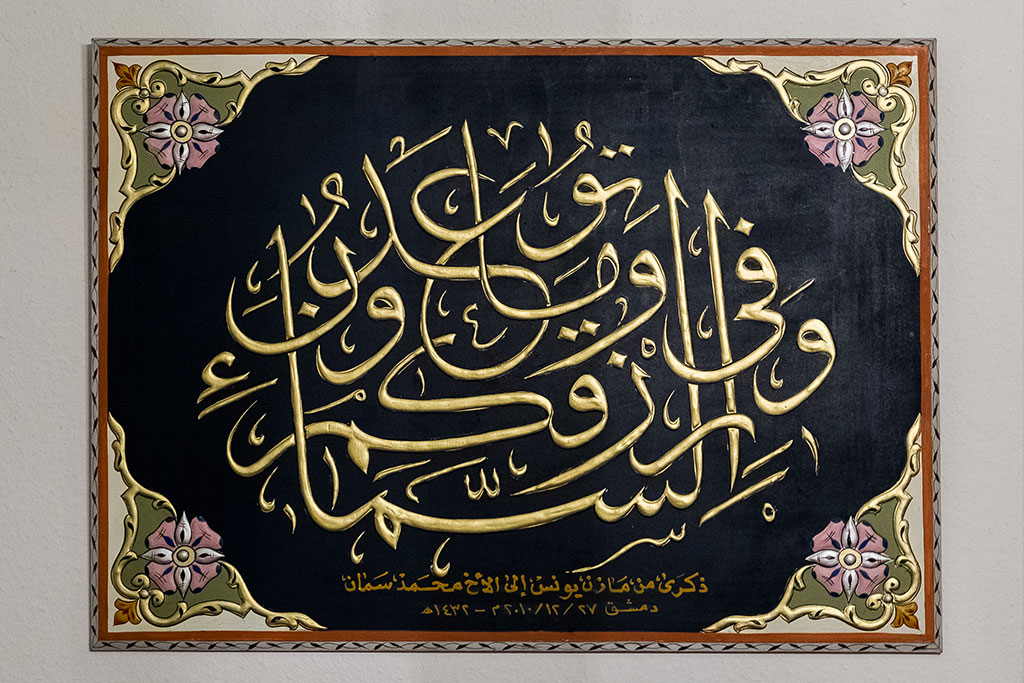 وَفِي السَّمَاءِ رِزْقُكُمْ وَمَا تُوعَدُونَ
ذكرى من مازن يونس إلى الأخ محمد سمان
دمشق ٢٧/١٢/٢٠١٠م - ١٤٣٢هـ